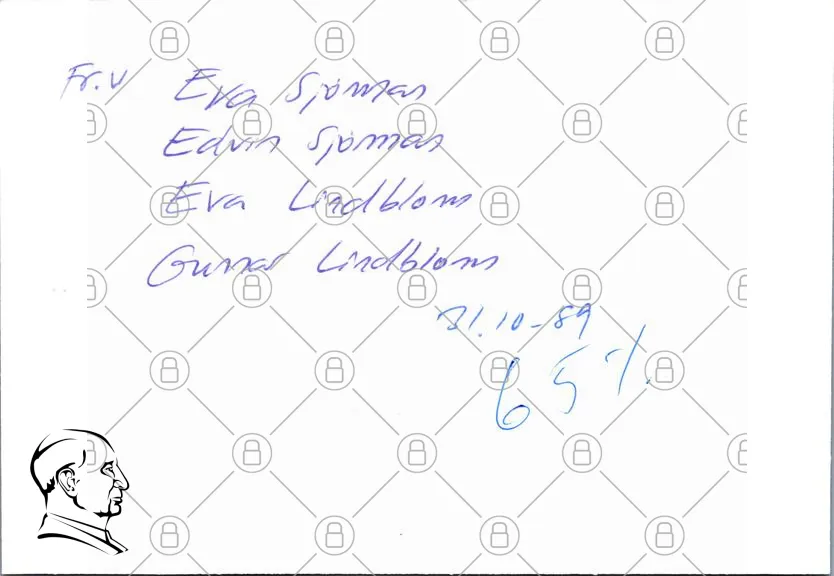 Fr.v Eva Sjöman
Edvin Sjöman
Eva Lindblom
Gunnar Lindblom
31.10-89
65%